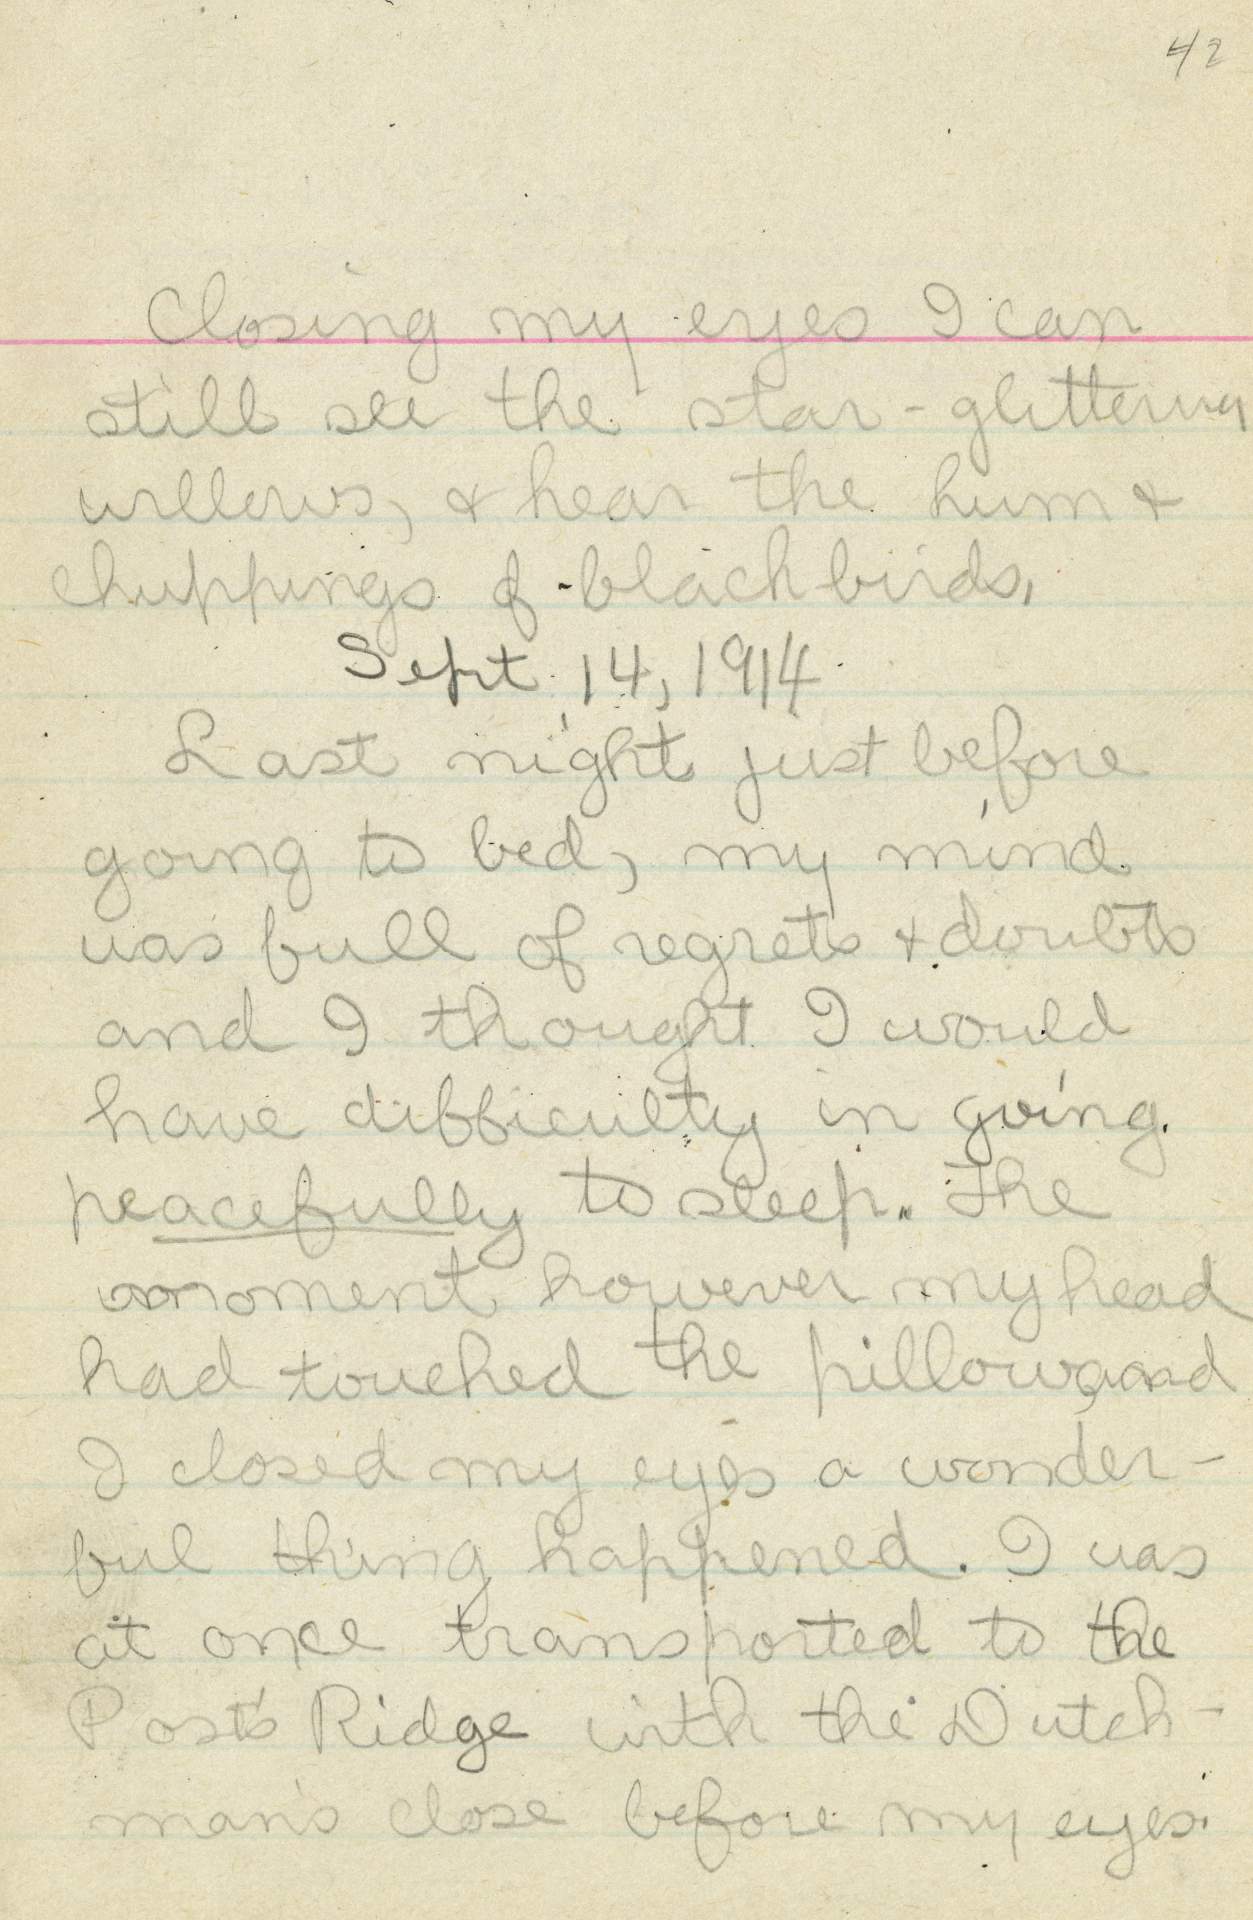 42
Closing my eyes I can
still see the star-glittering
willows, & hear the hum &
chuppings of blackbirds,
Sept. 14, 1914
Last night just before
going to bed, my mind
was full of regrets & doubts
and I thought I would
have difficulty in going
peacefully to sleep. The
moment however my head
had touched the pillow, and
I closed my eyes a wonder-
ful thing happened. I was
at once transported to the
Post's Ridge with the Dutch-
man's close before my eyes.